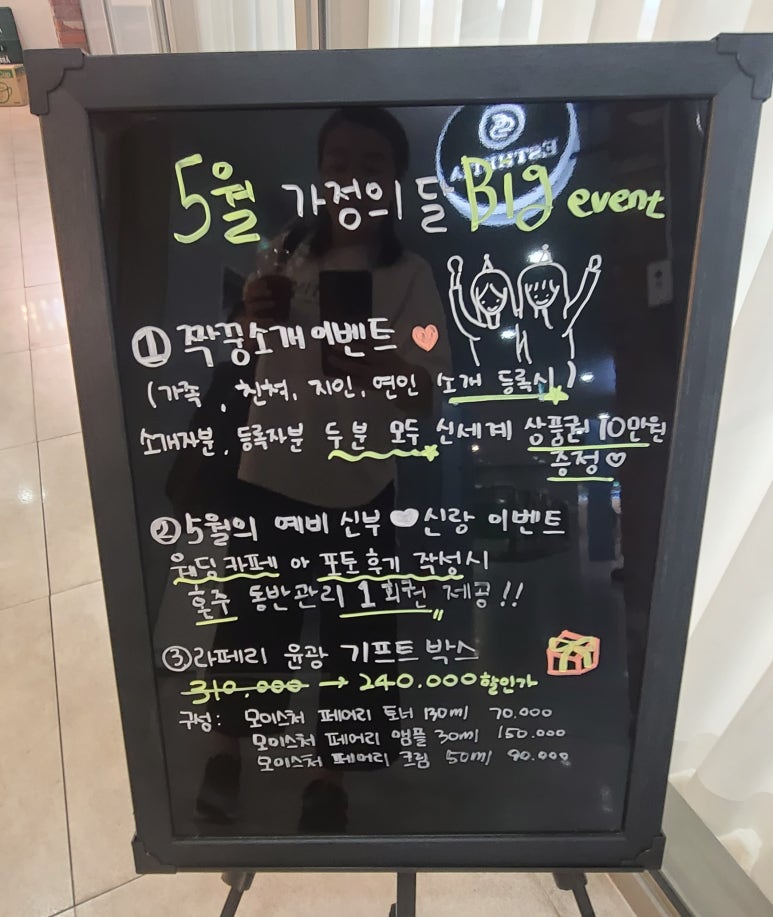 5월 가정의 달 Big event
① 짝꿍소개 이벤트
(가족, 친척, 지인, 연인 소개 등록시)
소개자분, 등록자분 두분 모두 신세계 상품권 10만원
증정♡
② 5월의 예비 신부 ♥ 신랑 이벤트
웨딩카페 아 포토후기 작성시
혼주 동반관리 1회권 제공!!
③ 라페리 윤광 기프트 박스
310.000 → 240.000 할인가
구성: 모이스처 페어리 토너 130ml 70.000
모이스처 페어리 앰플 30ml 150.000
모이스처 페어리 크림 50ml 90.000